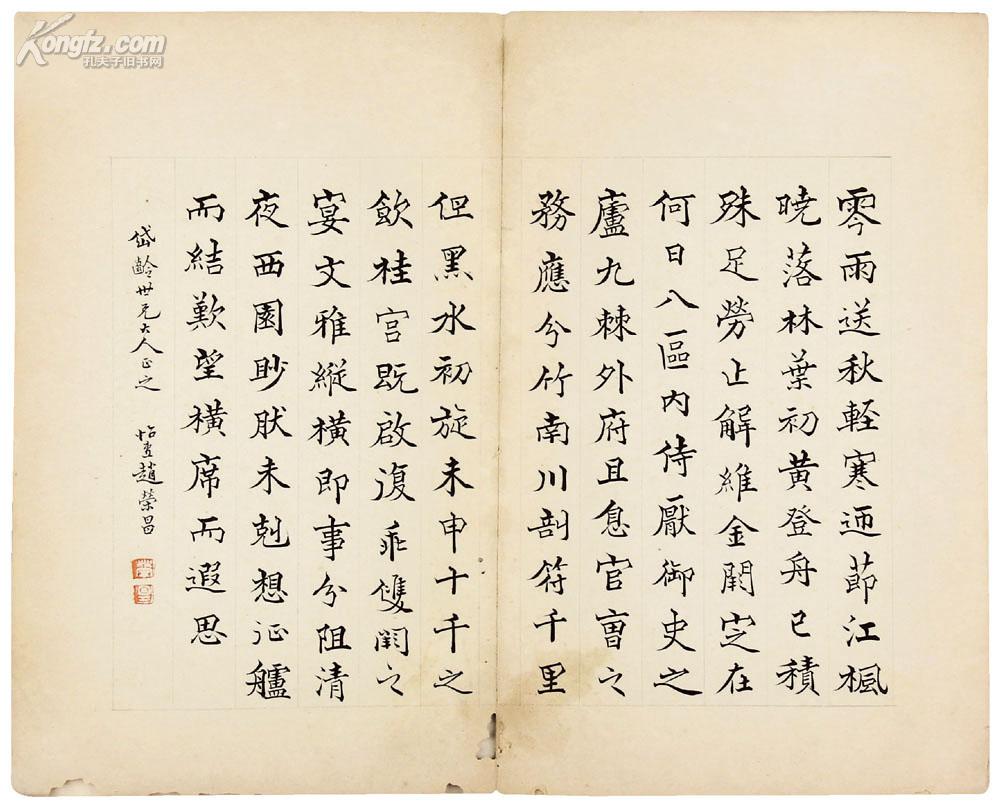 零雨送秋軽寒迊節江楓
曉落林葉初黃登舟已積
殊足勞止解維金闕定在
何日八區內侍厭御史之
廬九棘外府且息官曺之
務應分竹南川剖符千里
但黑水初旋未申十千之
飲桂宮既啟復乖雙闕之
宴文雅縱橫即事分阻清
夜西園眇肰未剋想征艫
而結歎望橫席而遐思
岱齡世兄大人正之 趙榮昌
Kongfz.com
孔夫子旧书网